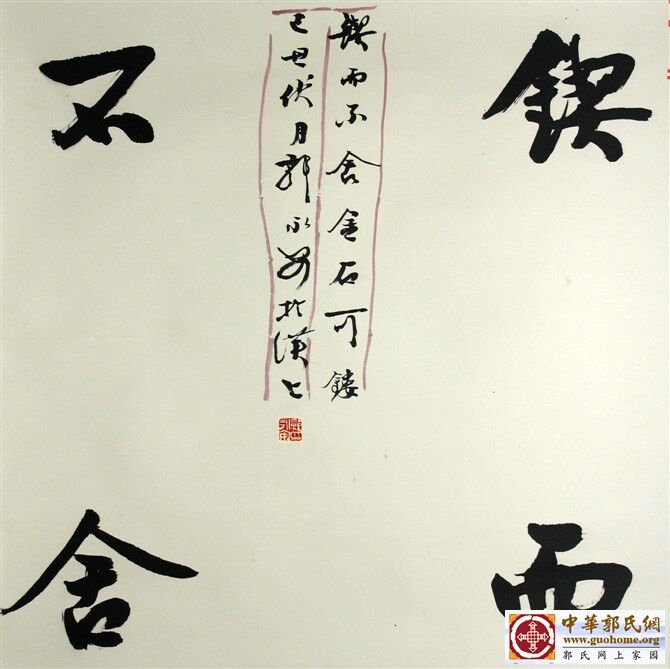 鍥而
不舍
鍥而不舍金石可鏤
己丑伏月郭永安於漢上
中華郭氏網
www.guohome.org
郭氏网上家园